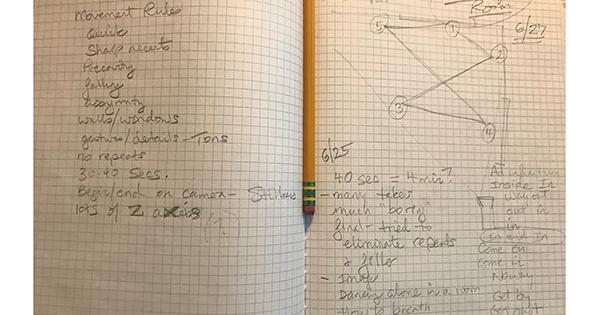 Movement Rules
Quick
Sharp accents
Precarity
falling
assymitry
walls/windows
gesture/details - Tons
no repeats
30-40 secs.
Begin/end on camera - Stillness
lots of Z axis
Room
6/27
5
1
2
3
4
6/25
40 sec = 4 min?
- many takes
much boring
final - tried to
eliminate repeats
& filler
- Image
Dancing alone in a room
How to breath
Ad infinitum
Inside In
way out
out in
in
In and In
Came on
Came in
No way
Get by
Get past